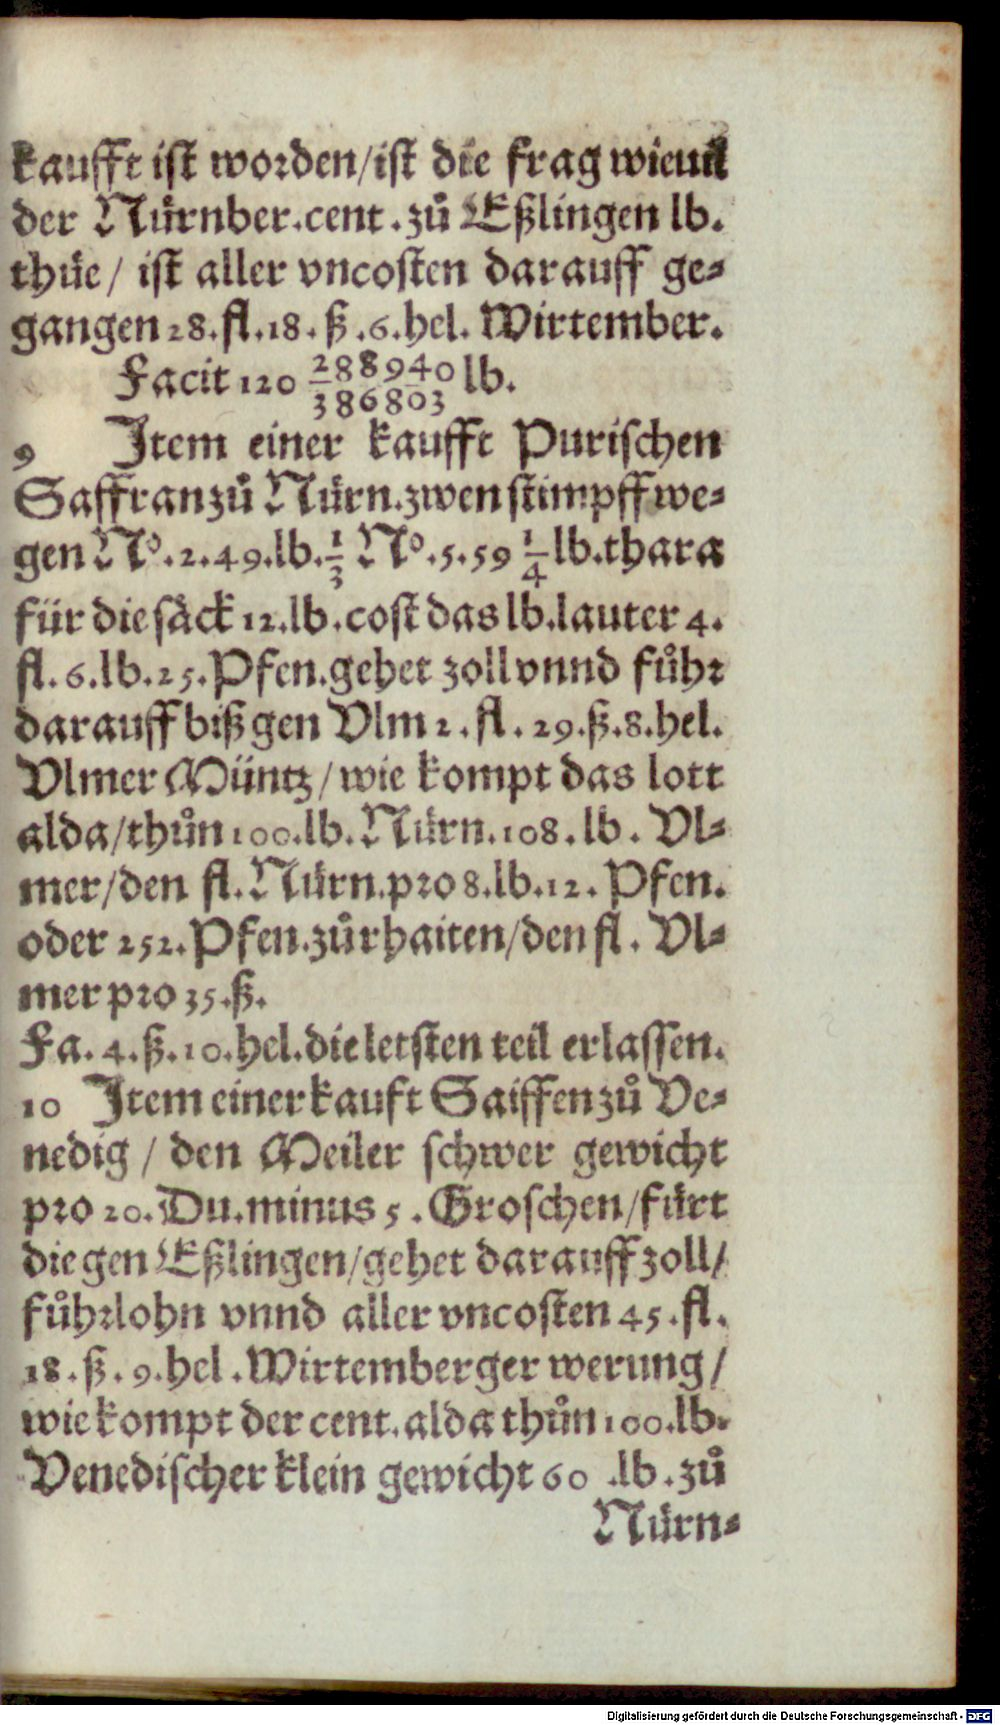 kaufft ist worden/ist die frag wieuil
der Nürnber.cent.zů Eßlingen lb.
thüe/ ist aller vncosten darauff ge⸗
gangen 28.fl.18.ß.6.hel. Wirtember.
Facit 120 288940/386803 lb.
9 Item einer kaufft Purischen
Saffran zů Nürn.zwen stimpff we⸗
gen No.2.49.lb.1/3 No.5.59 1/4 lb.thara
für die säck 12.lb.cost das lb.lauter 4.
fl.6.lb.25.Pfen.gehet zoll vnnd fůhr
darauff biß gen Vlm 2.fl.29.ß.8.hel.
Vlmer Müntz/wie kompt das lott
alda/thůn 100.lb.Nürn.108.lb. Vl⸗
mer/den fl.Nürn.pro 8.lb.12.Pfen.
oder 252.Pfen.zůrhaiten/den fl. Vl⸗
mer pro 35.ß.
Fa.4.ß.10.hel.die letsten teil erlassen.
10 Item einer kauft Saiffen zů Ve⸗
nedig / den Meiler schwer gewicht
pro 20.Du.minus 5.Groschen/fürt
die gen Eßlingen/gehet darauff zoll/
fůhrlohn vnnd aller vncosten 45.fl.
18.ß.9.hel.Wirtemberger werung/
wie kompt der cent.alda thůn 100.lb.
Venedischer klein gewicht 60 .lb.zů
Nürn⸗
Digitalisierung gefördert durch die Deutsche Forschungsgemeinschaft - DFG